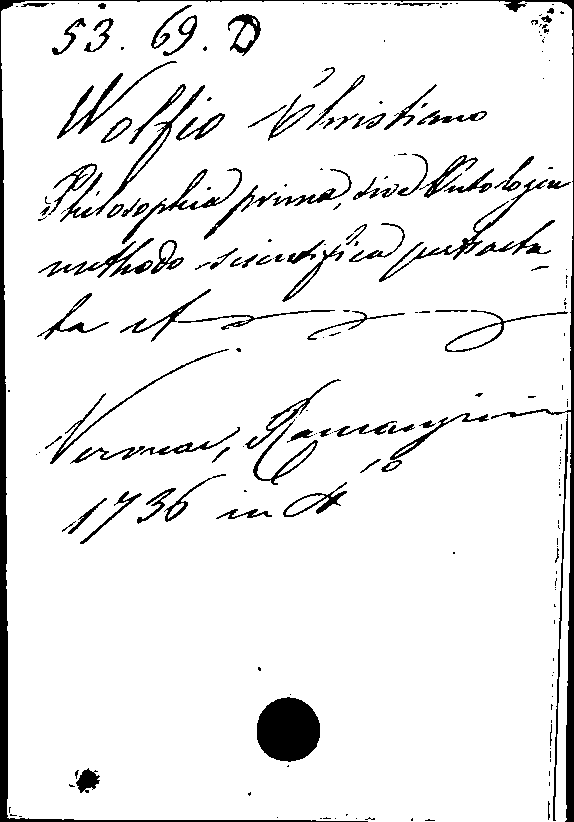 53. 69. D
Wolfio Christiano
Philosophia prima, sive Ontologia
methodo scientifica pertracta-
ta et
Veronae, Ramanzini
1736 in 4.to